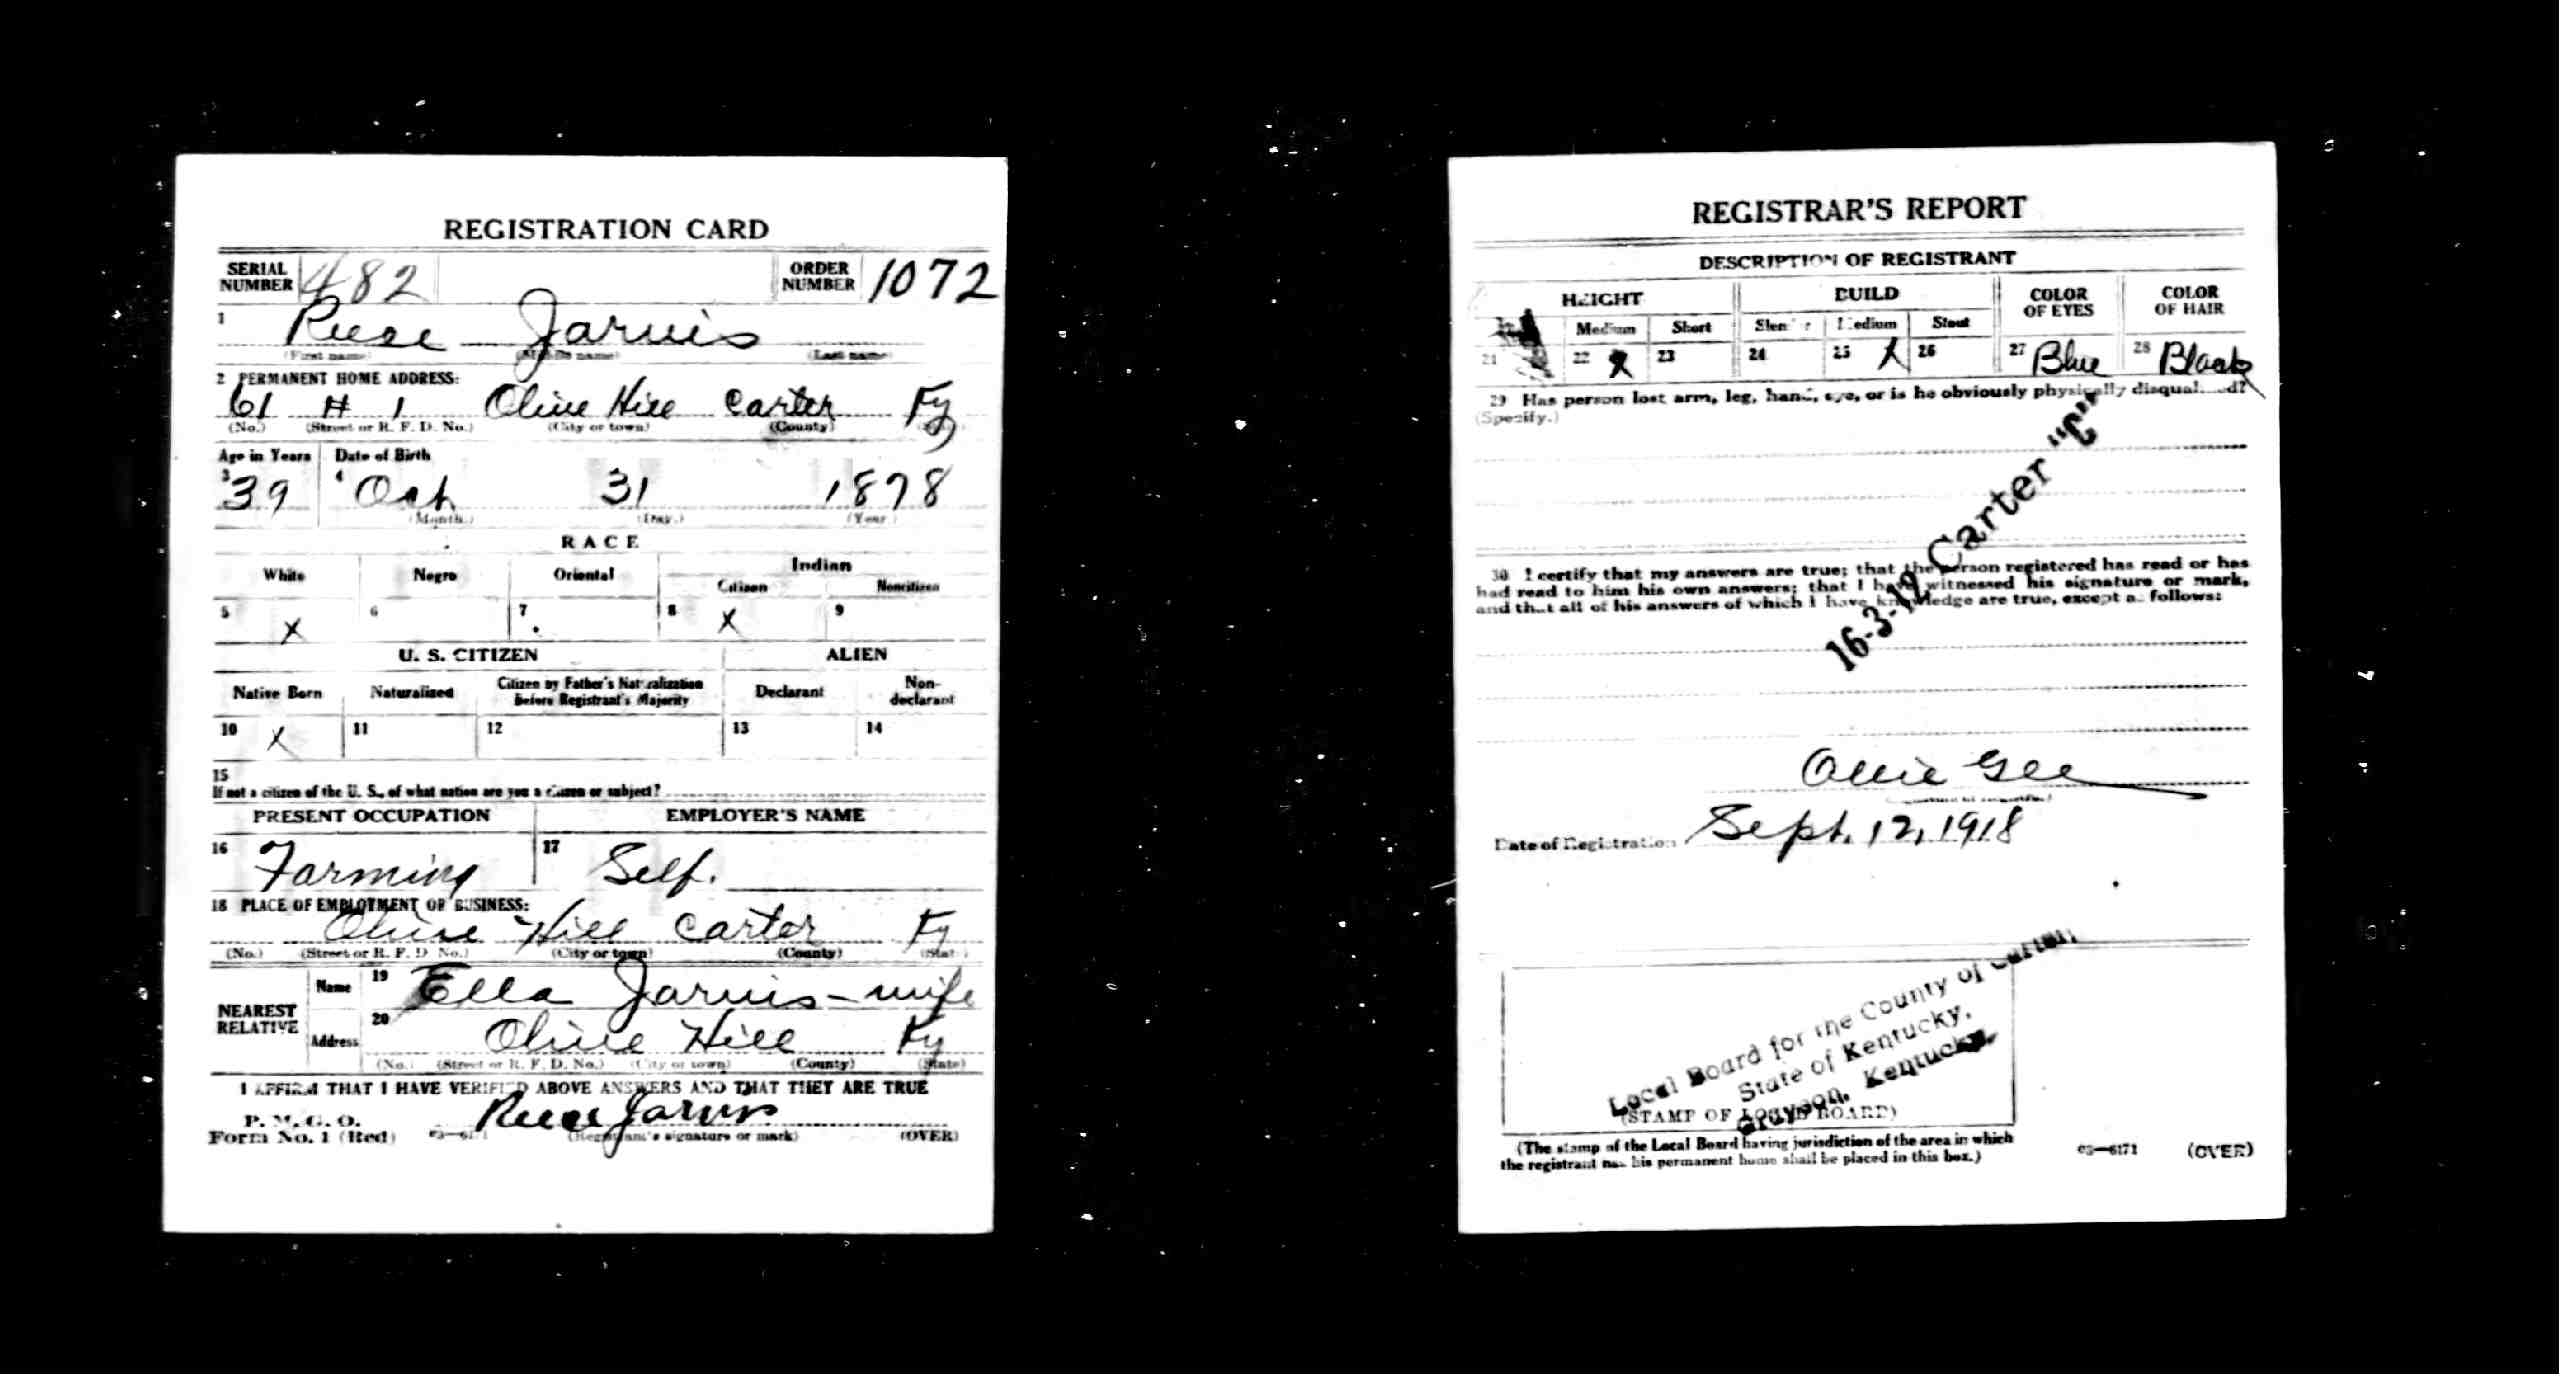 REGISTRATION CARD
SERIAL NUMBER 482 ORDER NUMBER 1072
1 Reese Jarvis
(First name) (Middle name) (Last name)
2 PERMANENT HOME ADDRESS:
61 # 1 Olive Hill Carter Ky
(No.) (Street or R. F. D. No.) (City or town) (County)
Age in Years Date of Birth
3 39 4 Oct 31 1878
(Month.) (Day.) (Year.)
RACE
White Negro Oriental Indian
Citizen Noncitizen
5 X 6 7 8 X 9
U. S. CITIZEN ALIEN
Native Born Naturalized Citizen by Father's Naturalization Before Registrant's Majority Declarant Non-declarant
10 X 11 12 13 14
15
If not a citizen of the U. S., of what nation are you a citizen or subject?
PRESENT OCCUPATION EMPLOYER'S NAME
16 Farming 17 Self.
18 PLACE OF EMPLOYMENT OR BUSINESS:
Olive Hill Carter Ky
(No.) (Street or R. F. D. No.) (City or town) (County) (State)
NEAREST RELATIVE
Name 19 Ella Jarvis - wife
Address 20 Olive Hill Ky
(No.) (Street or R. F. D. No.) (City or town) (County) (State)
I AFFIRM THAT I HAVE VERIFIED ABOVE ANSWERS AND THAT THEY ARE TRUE
P. M. G. O.
Form No. 1 (Red) Reece Jarvis
(Registrant's signature or mark) (OVER)
REGISTRAR'S REPORT
DESCRIPTION OF REGISTRANT
HEIGHT BUILD COLOR OF EYES COLOR OF HAIR
Medium Short Slender Medium Stout
21 22 X 23 24 25 X 26 27 Blue 28 Black
29 Has person lost arm, leg, hand, eye, or is he obviously physically disqualified?
(Specify.)
16-3-12 Carter "C"
30 I certify that my answers are true; that the person registered has read or has
had read to him his own answers; that I have witnessed his signature or mark,
and that all of his answers of which I have knowledge are true, except as follows:
Ollie Gee
Date of Registration Sept. 12, 1918
Local Board for the County of Carter,
State of Kentucky,
Grayson, Kentucky.
(STAMP OF LOCAL BOARD)
(The stamp of the Local Board having jurisdiction of the area in which
the registrant has his permanent home shall be placed in this box.)
03—6171 (OVER)